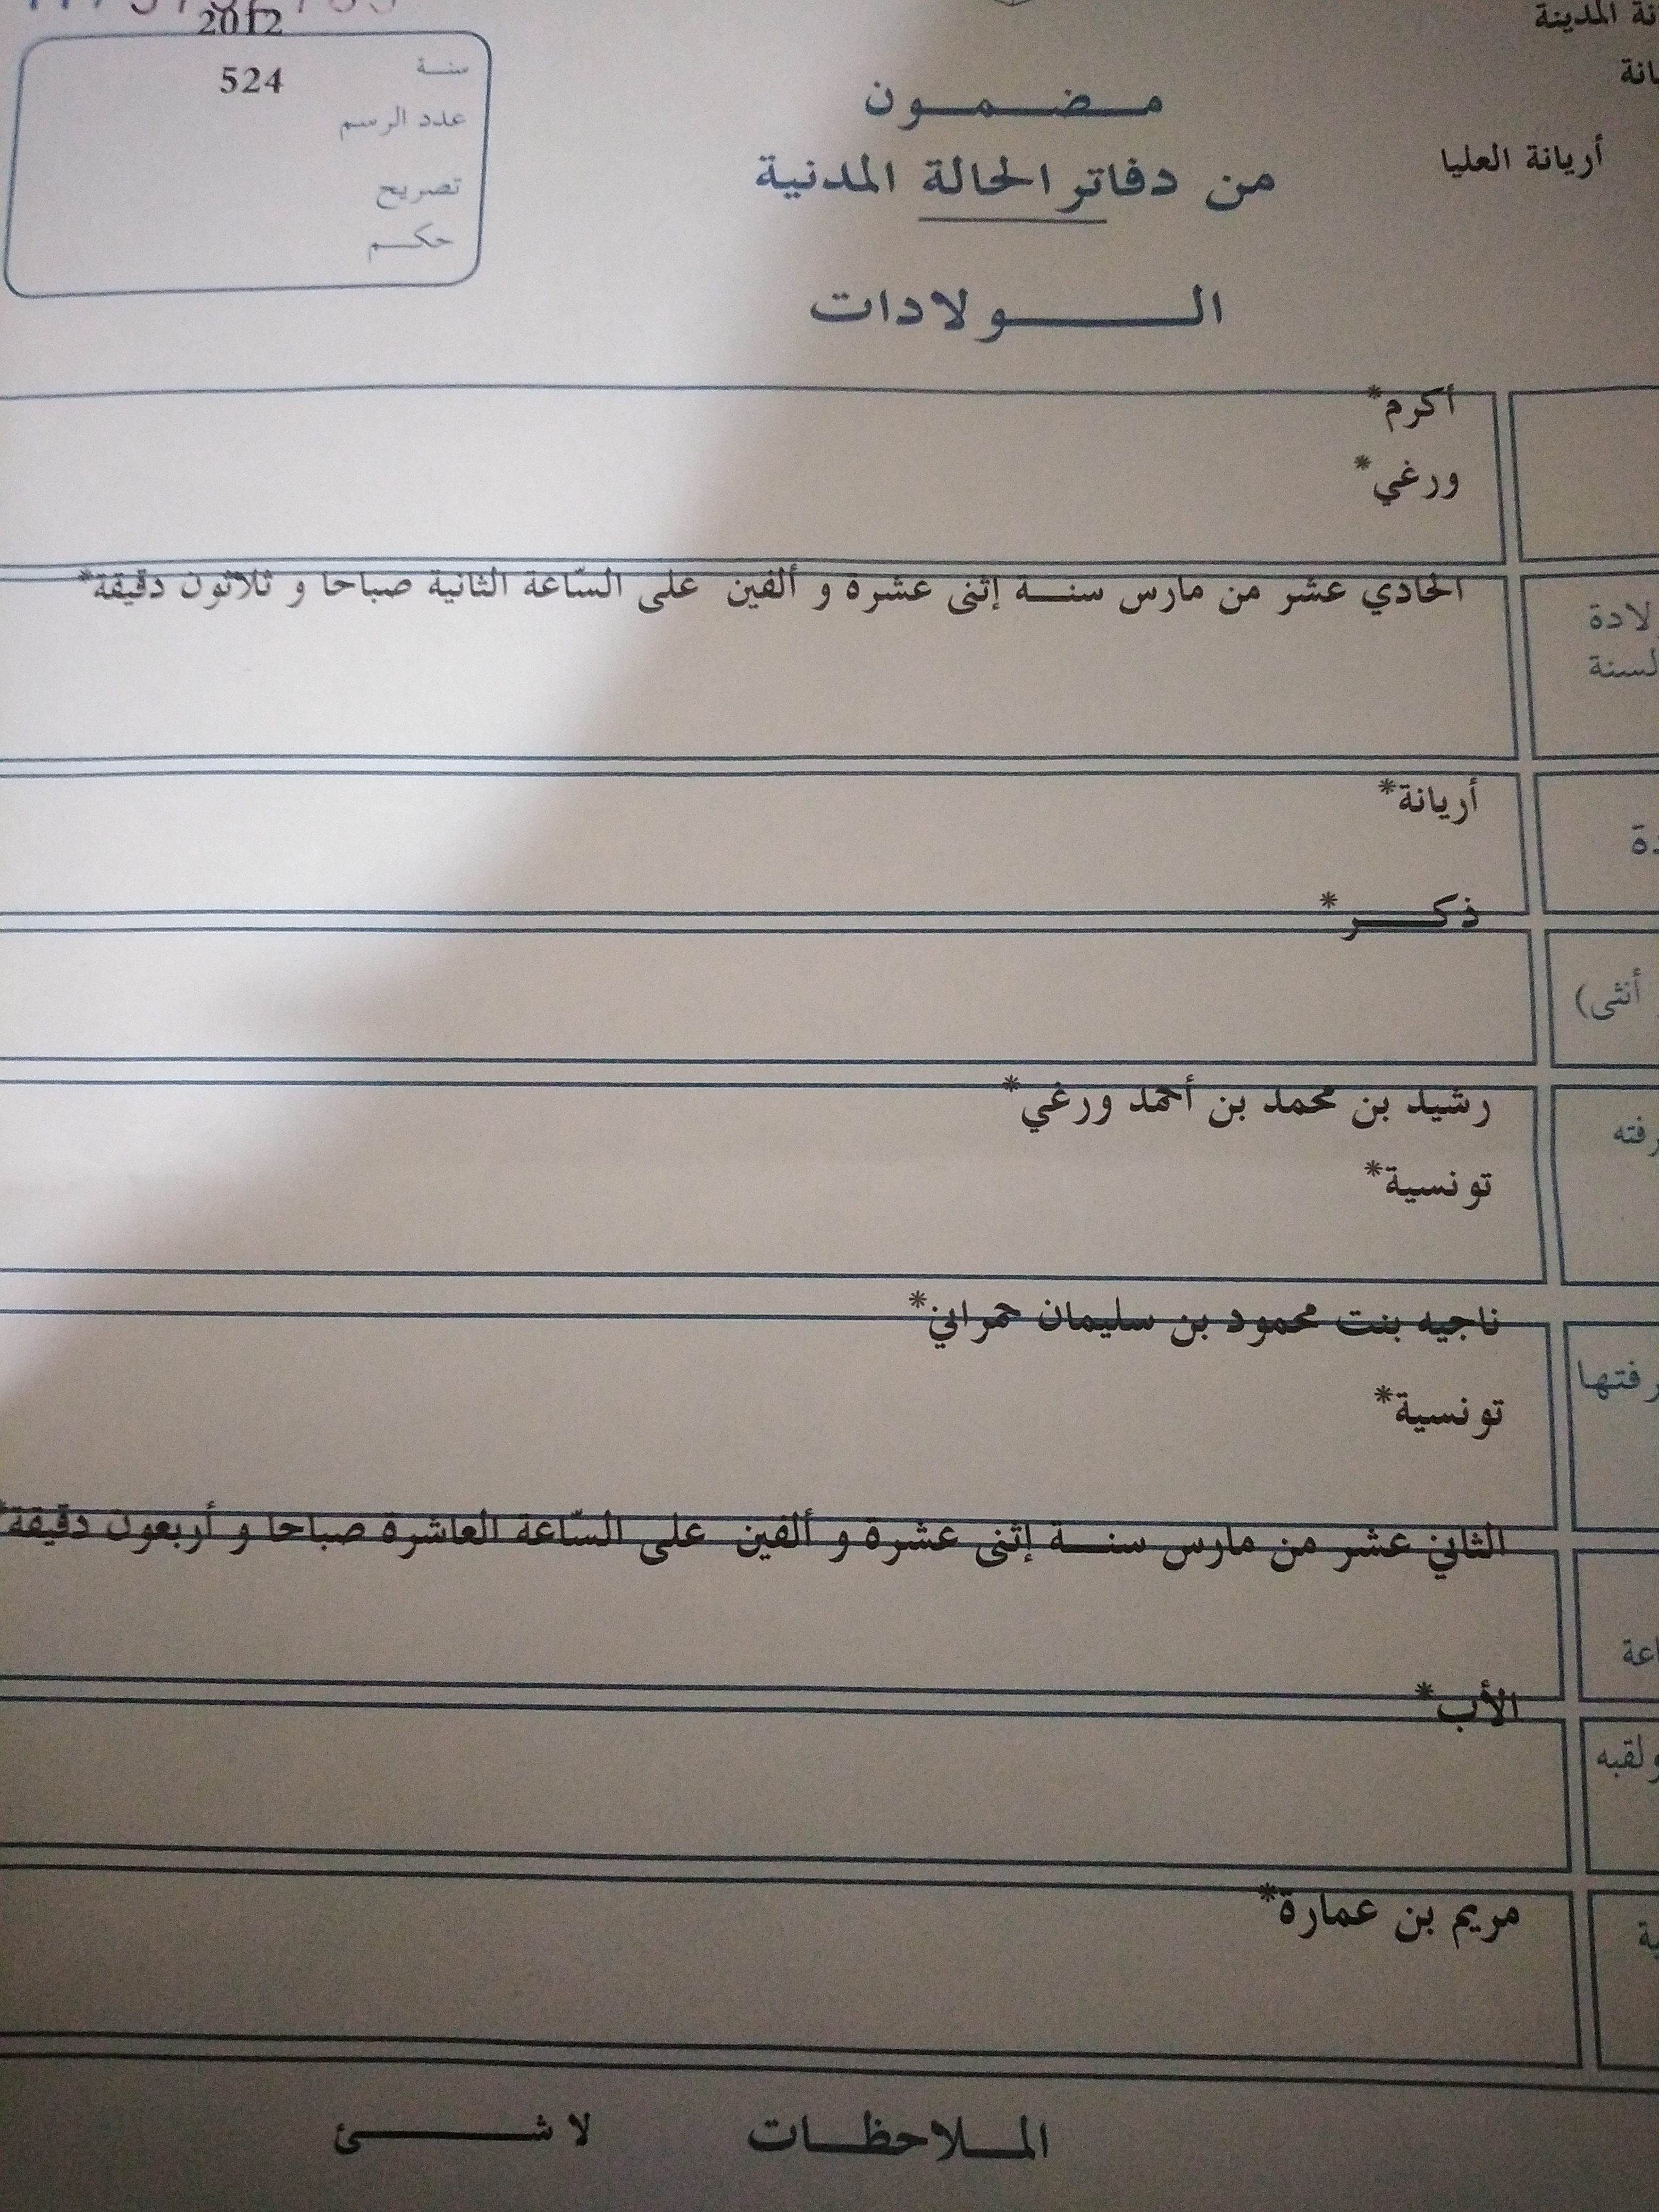 2012
سنة
524
عدد الرسم
تصريح
حكم
المدينة
أريانة العليا
مضمون
من دفاتر الحالة المدنية
الولادات
أكرم*
ورغي*
الحادي عشر من مارس سنة إثنى عشرة و ألفين على السّاعة الثانية صباحا و ثلاثون دقيقة*
أريانة*
ذكر*
أنثى)
رشيد بن محمد بن أحمد ورغي*
تونسية*
ناجيه بنت محمود بن سليمان حمراني*
تونسية*
الثاني عشر من مارس سنة إثنى عشرة و ألفين على السّاعة العاشرة صباحا و أربعون دقيقة*
الأب*
ولقبه
مريم بن عمارة*
الملاحظات لا شئ